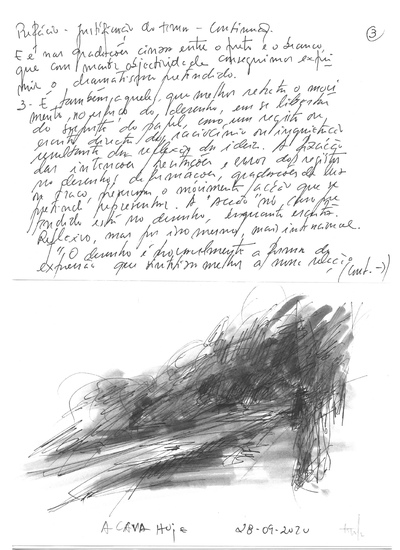 Prefácio - Justificação do tema - Continuação.
3
E é nas gradações cinzas entre o preto e o branco
que com maior objectividade conseguimos expri
mir o dramatismo pretendido.
3 - É também aquele que melhor retrata o movi
mento, no estudo do desenho, em se libertar
do suporte do papel, como um registo ou
escrita directa do raciocínio ou inquietação
resultante da reflexão da ideia. A fixação
das intenções, hesitações e error do registo
no desenho, deformações, gradações de luz
ou traço, representa o movimento/acção que se
pretende representar. A "acção"
está no desenho, enquanto escrita.
Reflexivo, mas por isso mesmo, mais intencional.
"O desenho é a forma de
expressão que melhor a relação
(Cont. →)
A CAVA Hoje 28-09-2020